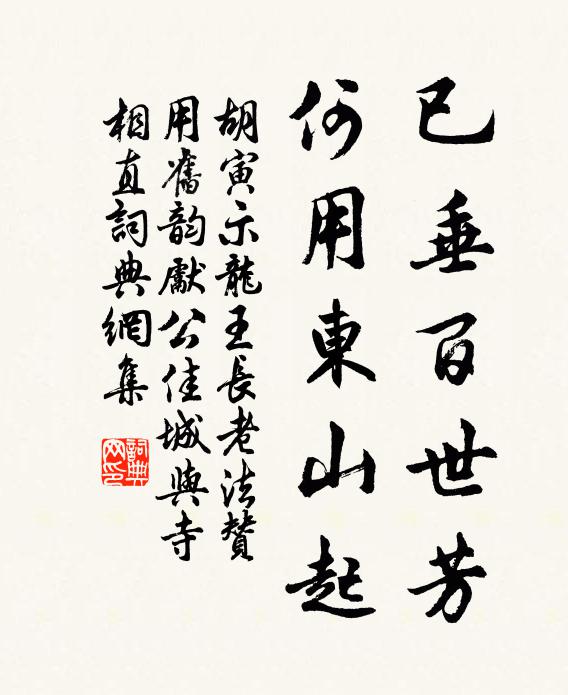 已垂百世芳
何用東山起
胡寅示龍王長老法贊
用舊韵獻公佳城與寺
相直詞典網集
詞典
网印